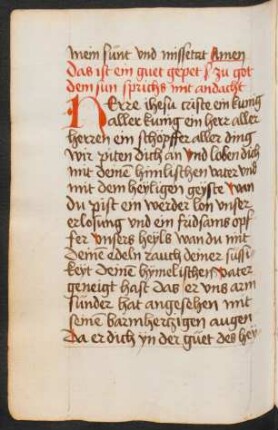 mein sünt vnd missetat Amen
Das ist ein guet gepet zu got
dem sun sprichs mit andacht
Herre ihesu criste ein kunig
aller kunig ein herr aller
herren ein schöpffer aller ding
wir piten dich an vnd loben dich
mit deinē himlischen vater vnd
mit dem heyligen geyste wan
du pist ein werder lon vnser
erlosung vnd ein fridsams opf
fer vnsers heyls wan du mit
deinē edeln rauch deiner sussi
keyt deinē hymelischen vater
geneigt hast das er vns arm
sunder hat angesehen mit
seinē barmhertzigen augen
Da er dich yn der guet des hey